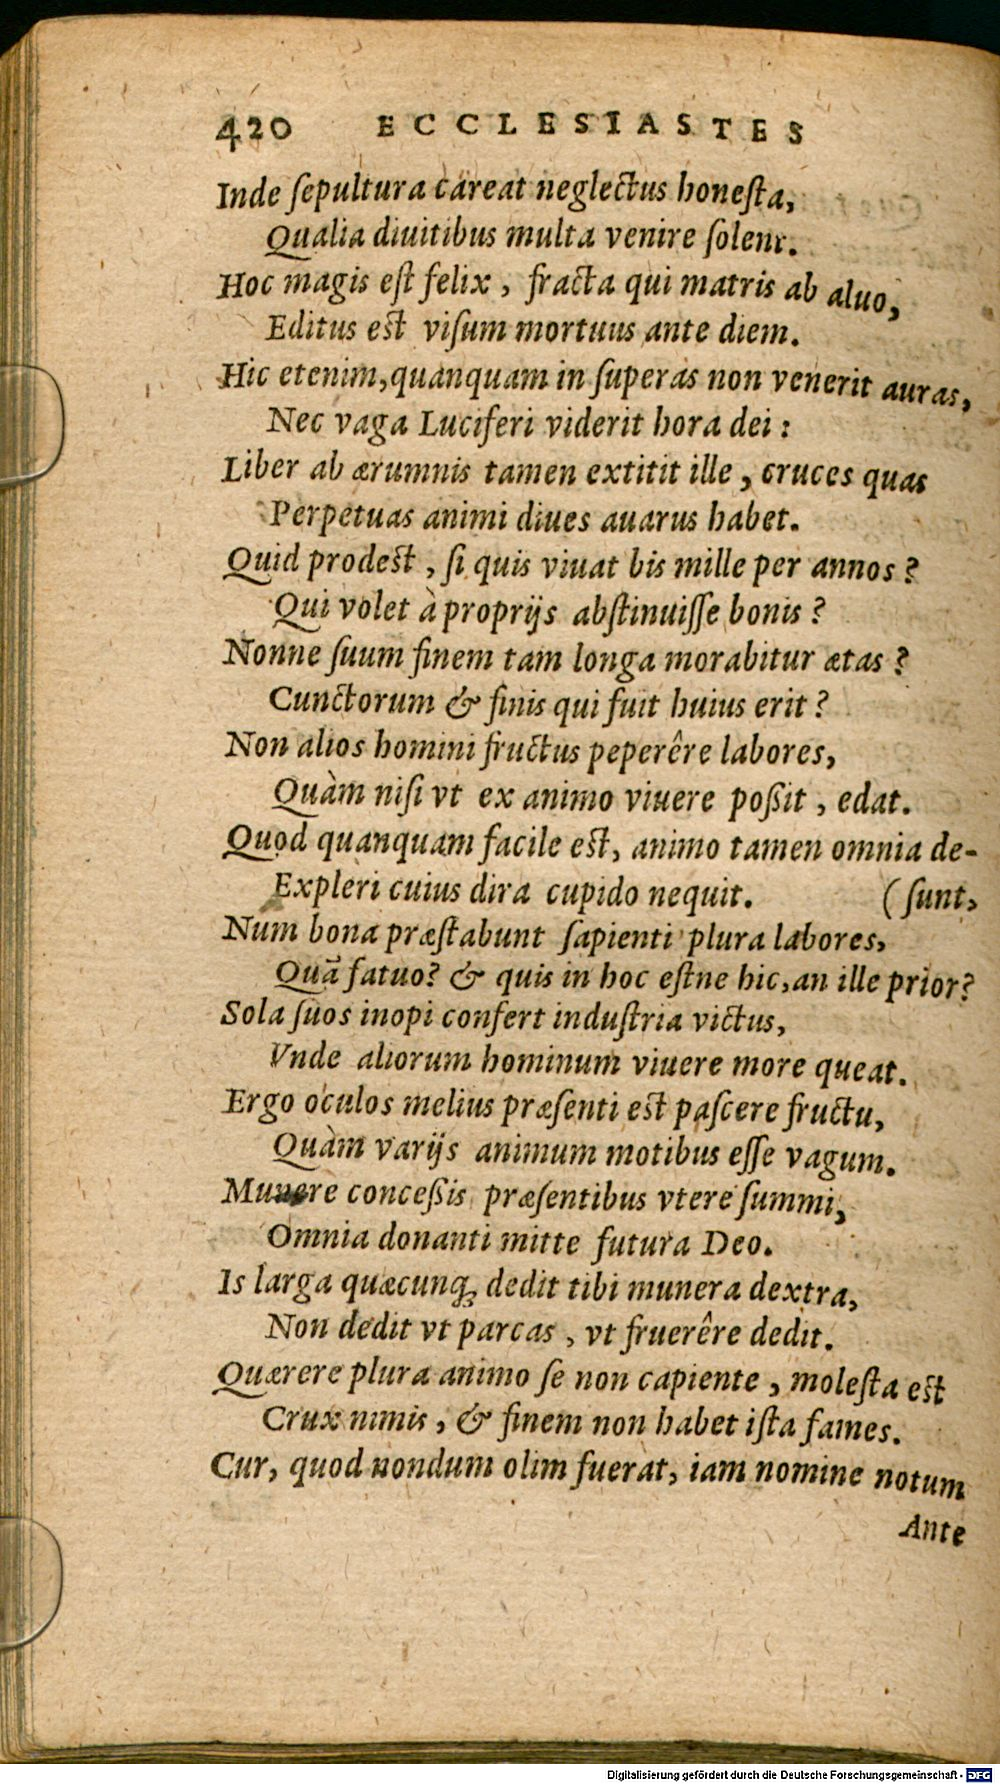 420 ECCLESIASTES
Inde ſepultura careat neglectus honeſta,
Qualia diuitibus multa venire ſolent.
Hoc magis eſt felix, fracta qui matris ab aluo,
Editus eſt viſum mortuus ante diem.
Hic etenim, quanquam in ſuperas non venerit auras,
Nec vaga Luciferi viderit hora dei:
Liber ab ærumnis tamen extitit ille, cruces quas
Perpetuas animi diues auarus habet.
Quid prodeſt, ſi quis viuat bis mille per annos?
Qui volet à proprijs abſtinuiſſe bonis?
Nonne ſuum finem tam longa morabitur ætas?
Cunctorum & finis qui fuit huius erit?
Non alios homini fructus peperêre labores,
Quàm niſi vt ex animo viuere poßit, edat.
Quod quanquam facile eſt, animo tamen omnia de-
Expleri cuius dira cupido nequit. (ſunt,
Num bona præſtabunt ſapienti plura labores,
Quã fatuo? & quis in hoc eſtne hic, an ille prior?
Sola ſuos inopi confert induſtria victus,
Vnde aliorum hominum viuere more queat.
Ergo oculos melius præſenti eſt paſcere fructu,
Quàm varijs animum motibus eſſe vagum.
Munere conceßis præſentibus vtere ſummi,
Omnia donanti mitte futura Deo.
Is larga quæcunq; dedit tibi munera dextra,
Non dedit vt parcas, vt fruerêre dedit.
Quærere plura animo ſe non capiente, moleſta eſt
Crux nimis, & finem non habet iſta fames.
Cur, quod nondum olim fuerat, iam nomine notum
Ante
Digitalisierung gefördert durch die Deutsche Forschungsgemeinschaft - DFG